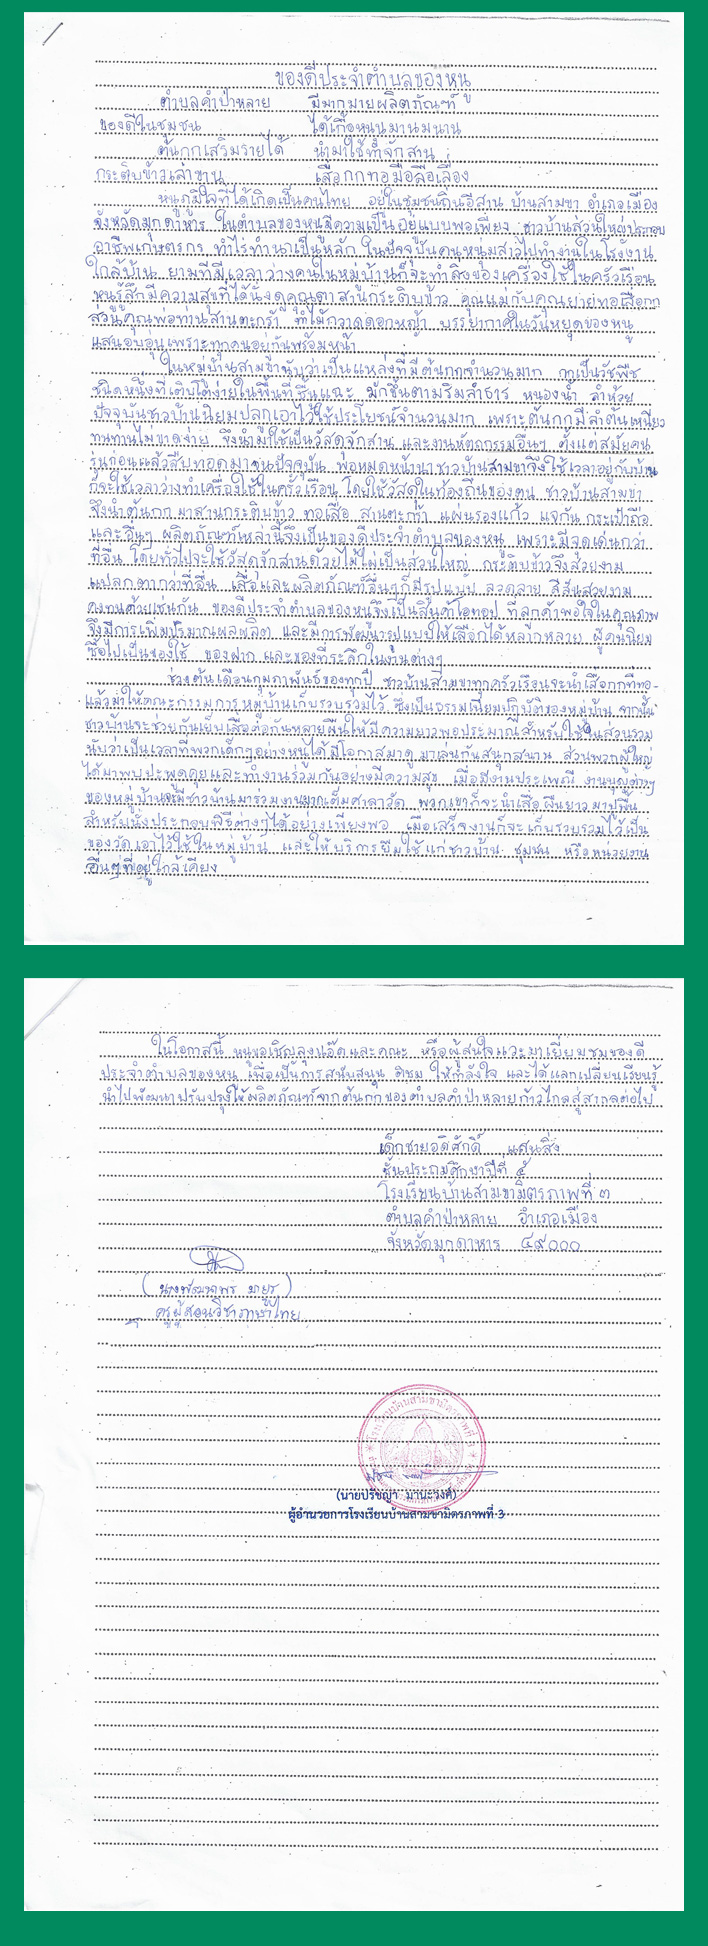 ของดีประจำตำบลของหนู
ตำบลคำป่าหลาย มีมากมายผลิตภัณฑ์
ของดีในชุมชน ได้เกื้อหนุนมานมนาน
ต้นกกเสริมรายได้ นำมาใช้ทำจักสาน
กระติบข้าวเล่าขาน เสื่อกกทอมือลือเลื่อง
หนูภูมิใจที่ได้เกิดเป็นคนไทย อยู่ในชุมชนถิ่นอีสาน บ้านสามขา อำเภอเมือง
จังหวัดมุกดาหาร ในตำบลของหนูมีความเป็นอยู่แบบพอเพียง ชาวบ้านส่วนใหญ่ประกอบ
อาชีพเกษตรกร ทำไร่ทำนาเป็นหลัก ในปัจจุบันคนหนุ่มสาวไปทำงานในโรงงาน
ใกล้บ้าน ยามที่มีเวลาว่างคนในหมู่บ้านก็จะทำสิ่งของเครื่องใช้ในครัวเรือน
หนูรู้สึกมีความสุขที่ได้นั่งดูคุณตาสานกระติบข้าว คุณแม่กับคุณยายทอเสื่อกก
ส่วนคุณพ่อท่านสานตะกร้า ทำไม้กวาดดอกหญ้า บรรยากาศในวันหยุดของหนู
แสนอบอุ่นเพราะทุกคนอยู่กันพร้อมหน้า
ในหมู่บ้านสามขานับว่าเป็นแหล่งที่มีต้นกกจำนวนมาก กกเป็นวัชพืช
ชนิดหนึ่งที่เติบโตง่ายในพื้นที่ชื้นแฉะ มักขึ้นตามริมลำธาร หนองน้ำ ลำห้วย
ปัจจุบันชาวบ้านนิยมปลูกเอาไว้ใช้ประโยชน์จำนวนมาก เพราะต้นกกมีลำต้นเหนียว
ทนทานไม่ขาดง่าย จึงนำมาใช้เป็นวัสดุจักสาน และงานหัตถกรรมอื่นๆ ตั้งแต่สมัยคน
รุ่นก่อนแล้วสืบทอดมาจนปัจจุบัน พอหมดหน้านาชาวบ้านสามขาจึงใช้เวลาอยู่กับบ้าน
ก็จะใช้เวลาว่างทำเครื่องใช้ในครัวเรือน โดยใช้วัสดุในท้องถิ่นของตน ชาวบ้านสามขา
จึงนำต้นกก มาสานกระติบข้าว ทอเสื่อ สานตะกร้า แผ่นรองแก้ว แจกัน กระเป๋าถือ
และอื่นๆ ผลิตภัณฑ์เหล่านี้จึงเป็นของดีประจำตำบลของหนู เพราะมีจุดเด่นกว่า
ที่อื่น โดยทั่วไปจะใช้วัสดุจักสานด้วยไม้ไผ่เป็นส่วนใหญ่ กระติบข้าวจึงสวยงาม
แปลกตากว่าที่อื่น เสื่อและผลิตภัณฑ์อื่นๆก็มีรูปแบบ ลวดลาย สีสันสวยงาม
คงทนด้วยเช่นกัน ของดีประจำตำบลของหนูจึงเป็นสินค้าโอทอป ที่ลูกค้าพอใจในคุณภาพ
จึงมีการเพิ่มปริมาณผลผลิต และมีการพัฒนารูปแบบให้เลือกได้หลากหลาย ผู้คนนิยม
ซื้อไปเป็นของใช้ ของฝาก และของที่ระลึกในงานต่างๆ
ช่วงต้นเดือนกุมภาพันธ์ของทุกปี ชาวบ้านสามขาทุกครัวเรือนจะนำเสื่อกกที่ทอ
แล้วมาให้คณะกรรมการหมู่บ้านเก็บรวบรวมไว้ ซึ่งเป็นธรรมเนียมปฏิบัติของหมู่บ้าน จากนั้น
ชาวบ้านจะช่วยกันเย็บเสื่อต่อกันหลายผืนให้มีความยาวพอประมาณสำหรับใช้ในส่วนรวม
นับว่าเป็นเวลาที่พวกเด็กๆอย่างหนูได้มีโอกาสมาดู มาเล่นกันสนุกสนาน ส่วนพวกผู้ใหญ่
ได้มาพบปะพูดคุยและทำงานร่วมกันอย่างมีความสุข เมื่อมีงานประเพณี งานบุญต่างๆ
ของหมู่บ้านจะมีชาวบ้านมาร่วมงานมากเต็มศาลาวัด พวกเขาก็จะนำเสื่อผืนยาวมาปูพื้น
สำหรับนั่งประกอบพิธีต่างๆได้อย่างเพียงพอ เมื่อเสร็จงานก็จะเก็บรวบรวมไว้เป็น
ของวัดเอาไว้ใช้ในหมู่บ้าน และให้บริการยืมใช้แก่ชาวบ้าน ชุมชน หรือหน่วยงาน
อื่นๆที่อยู่ใกล้เคียง
ในโอกาสนี้ หนูขอเชิญลุงแอ๊ดและคณะ หรือผู้สนใจแวะมาเยี่ยมชมของดี
ประจำตำบลของหนู เพื่อเป็นการสนับสนุน ติชม ให้กำลังใจ และได้แลกเปลี่ยนเรียนรู้
นำไปพัฒนาปรับปรุงให้ผลิตภัณฑ์จากต้นกกของตำบลคำป่าหลายก้าวไกลสู่สากลต่อไป
เด็กชายอดิศักดิ์ แสนสิ่ง
ชั้นประถมศึกษาปีที่ ๕
โรงเรียนบ้านสามขามิตรภาพที่ ๓
ตำบลคำป่าหลาย อำเภอเมือง
จังหวัดมุกดาหาร ๔๙๐๐๐
ครูผู้สอนวิชาภาษาไทย
(นายปรัชญา มานะวงศ์)
ผู้อำนวยการโรงเรียนบ้านสามขามิตรภาพที่ 3